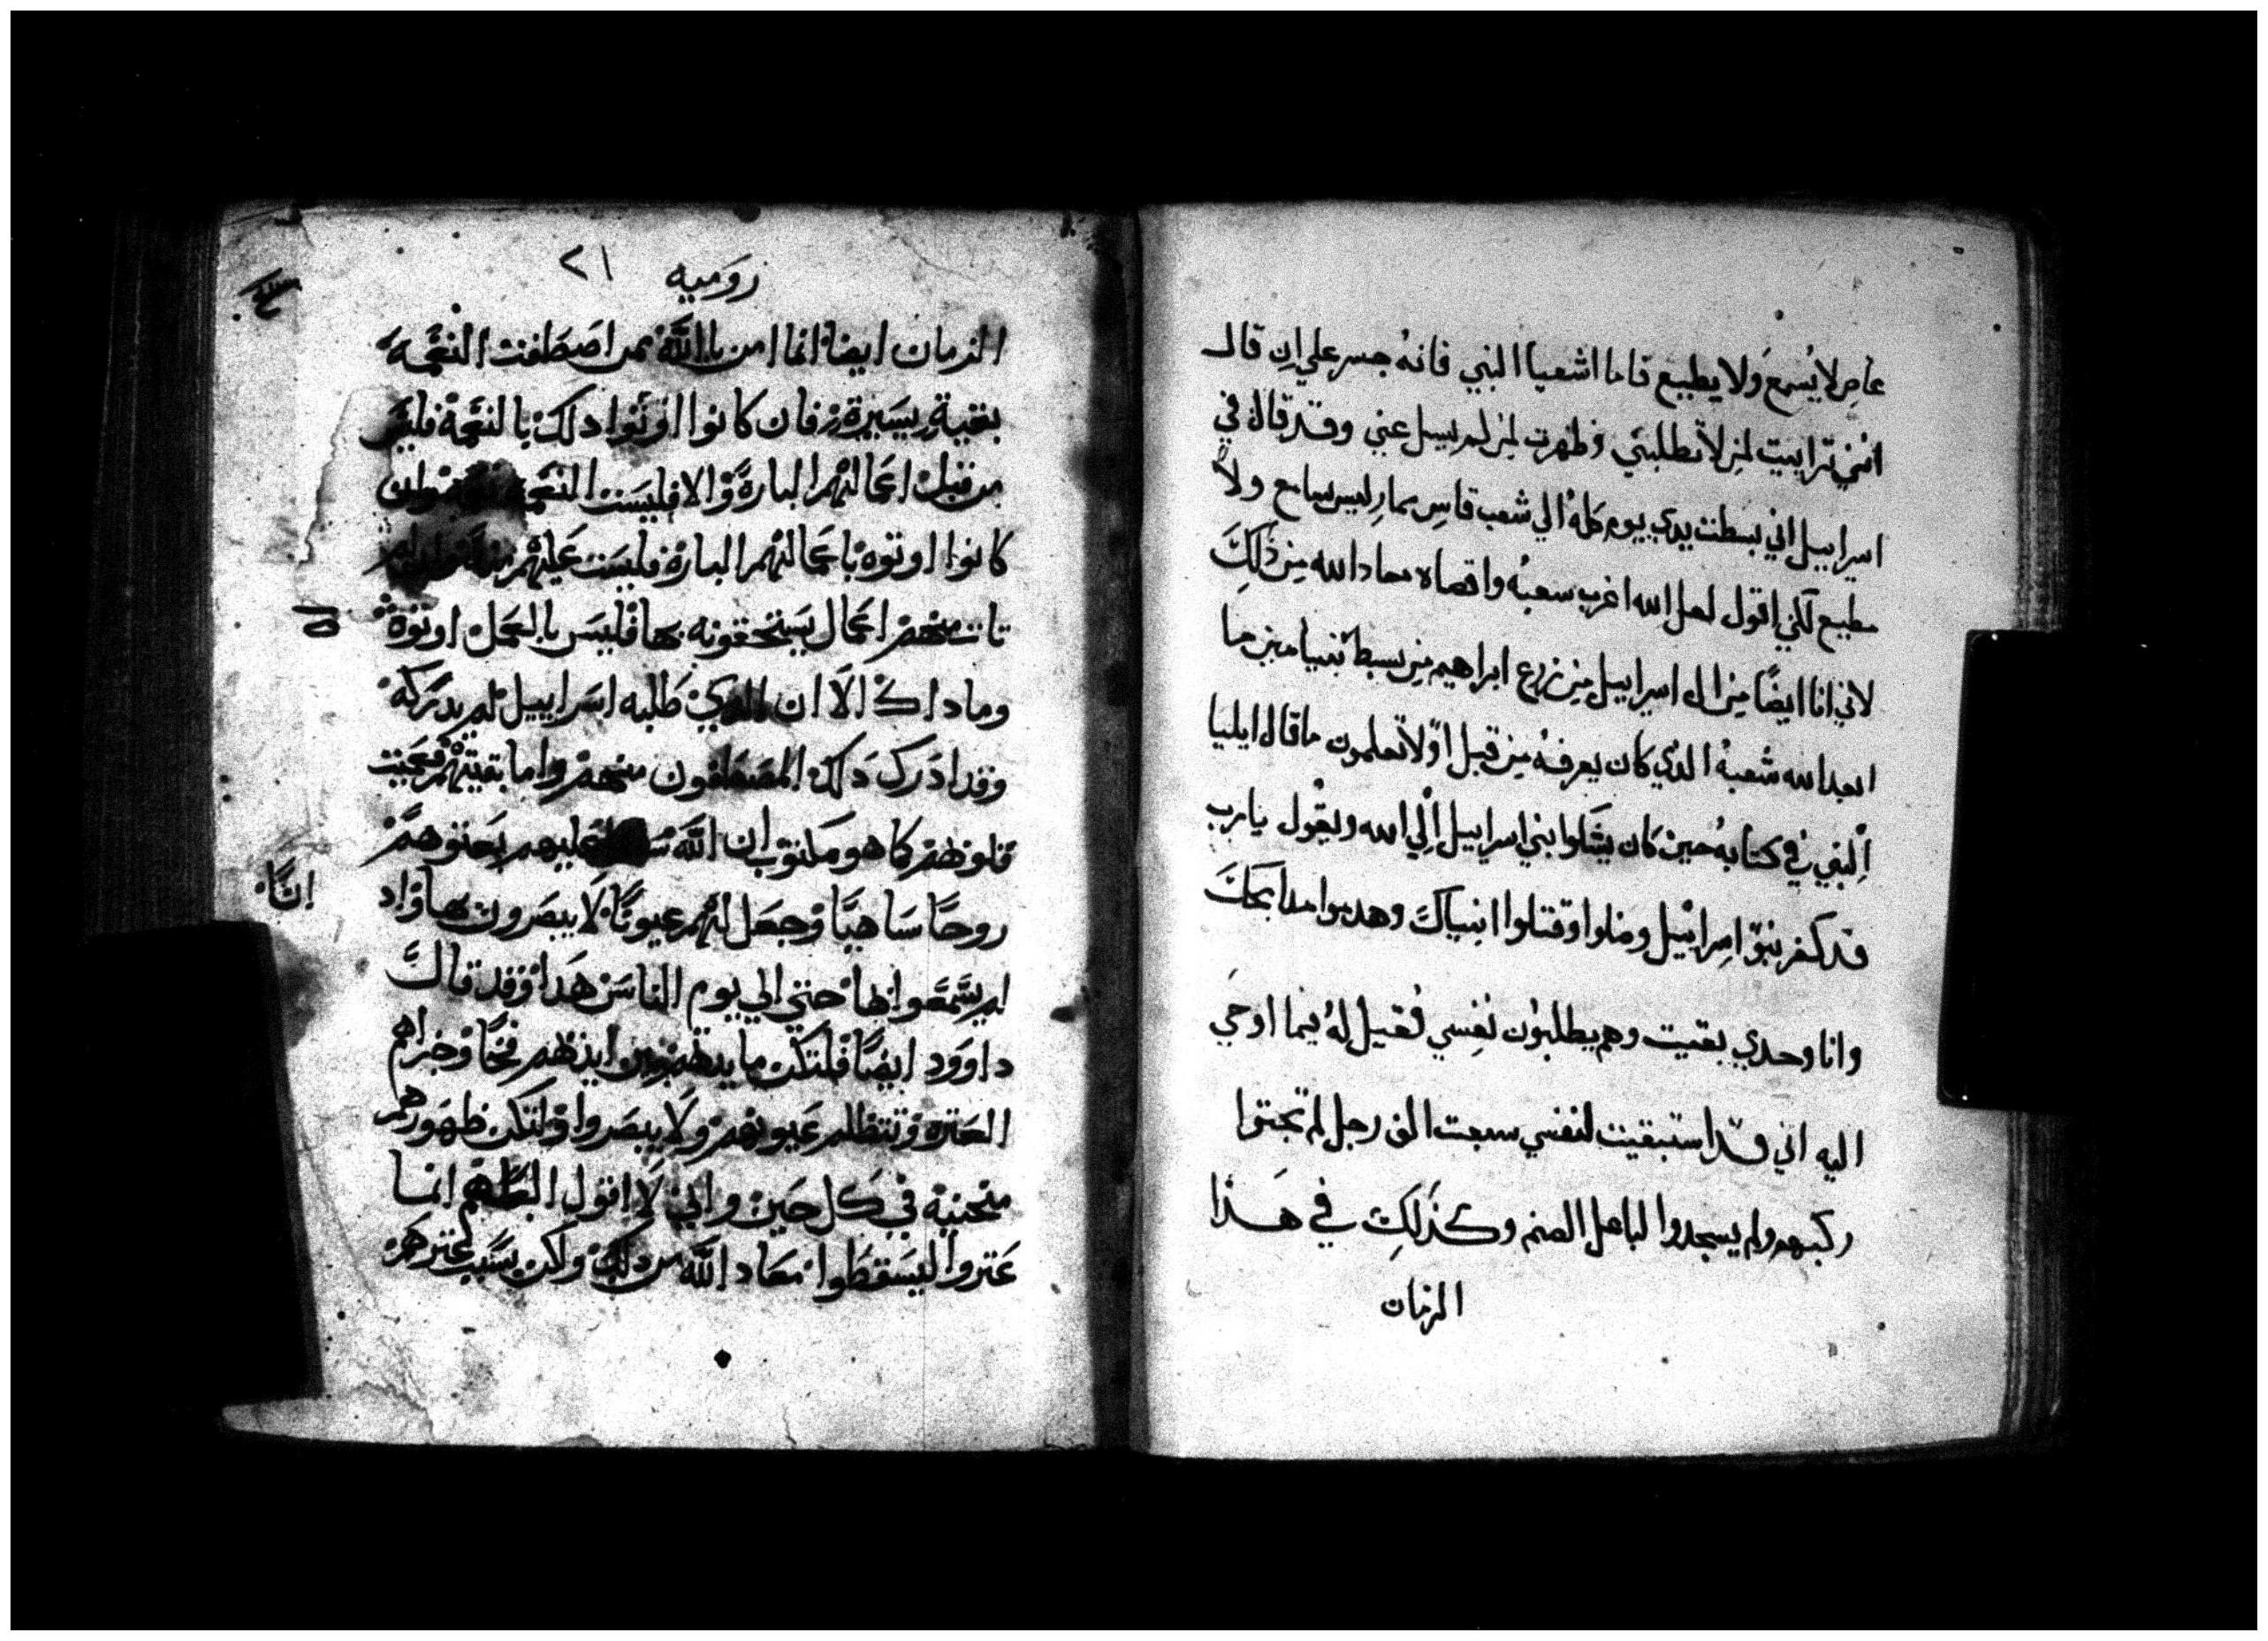 عاصٍ لا يُسمع ولا يطيع فاما اشعيا النبي فانهُ جسر علي ان قال
انني ترايت لمن لا يطلبني وظهرت لمن لم يسل عني وقد قال في
اسراييل اني بسطت يدي يوم كلهُ الي شعب قاسٍ ممارٍ ليس سامع ولا
مطيع لكني اقول لعل الله اغرب شعبهُ واقصاه معاد الله من ذلك
لاني انا ايضًا من ال اسراييل من زرع ابراهيم من سبط بنيامين ما
ابعد الله شعبهُ الذي كان يعرفهُ من قبل اوَلا تعلمون ما قال ايليا
النبي في كتابهُ حين كان يشكوا بني اسراييل الي الله ويقول يا رب
قد كفر بنو اسراييل وضلوا وقتلوا انبياك وهدموا مدابحك
وانا وحدي بقيت وهم يطلبون نفسي فقيل لهُ فيما اوحي
اليه اني قد استبقيت لنفسي سبعت الف رجل لم تجتوا
ركبهم ولم يسجدوا لباعل الصنم وكذلك في هذا
الزمان
روميه ٢١
الزمان ايضا انما امن بالله ممن اصطفت النعمه
بقية يسيرة فان كانوا اوتوا دلك بالنعمة فليس
من قبل اعمالهم البارة والا فليست النعمة وان
كانوا اوتوه باعمالهم البارة فليست عليهم
تات منهم اعمال يستحقونه بها فليس بالعمل اوتوه
وما داك الا ان الدي طلبه اسراييل لم يدركه
وقد ادرك دلك المصطفون منهم واما بقيتهم فعميت
قلوبهم كما هو مكتوب ان الله عليهم بعتوهم
روحًا ساهيًا وجعل لهم عيونًا لا يبصرون بها واد
انًا
لم يسمعوا بها حتي الي يوم الناس هدا وقد قال
داوود ايضًا فلتكن ما يدهم بين ايديهم فخًا وجزاهم
العترة وتتظلم عيونهم ولا يبصروا ولتكن ظهورهم
منحنية في كل حين واني لا اقول انما
عتروا ليسقطوا معاد الله من دلك ولكن بسبب عترهم